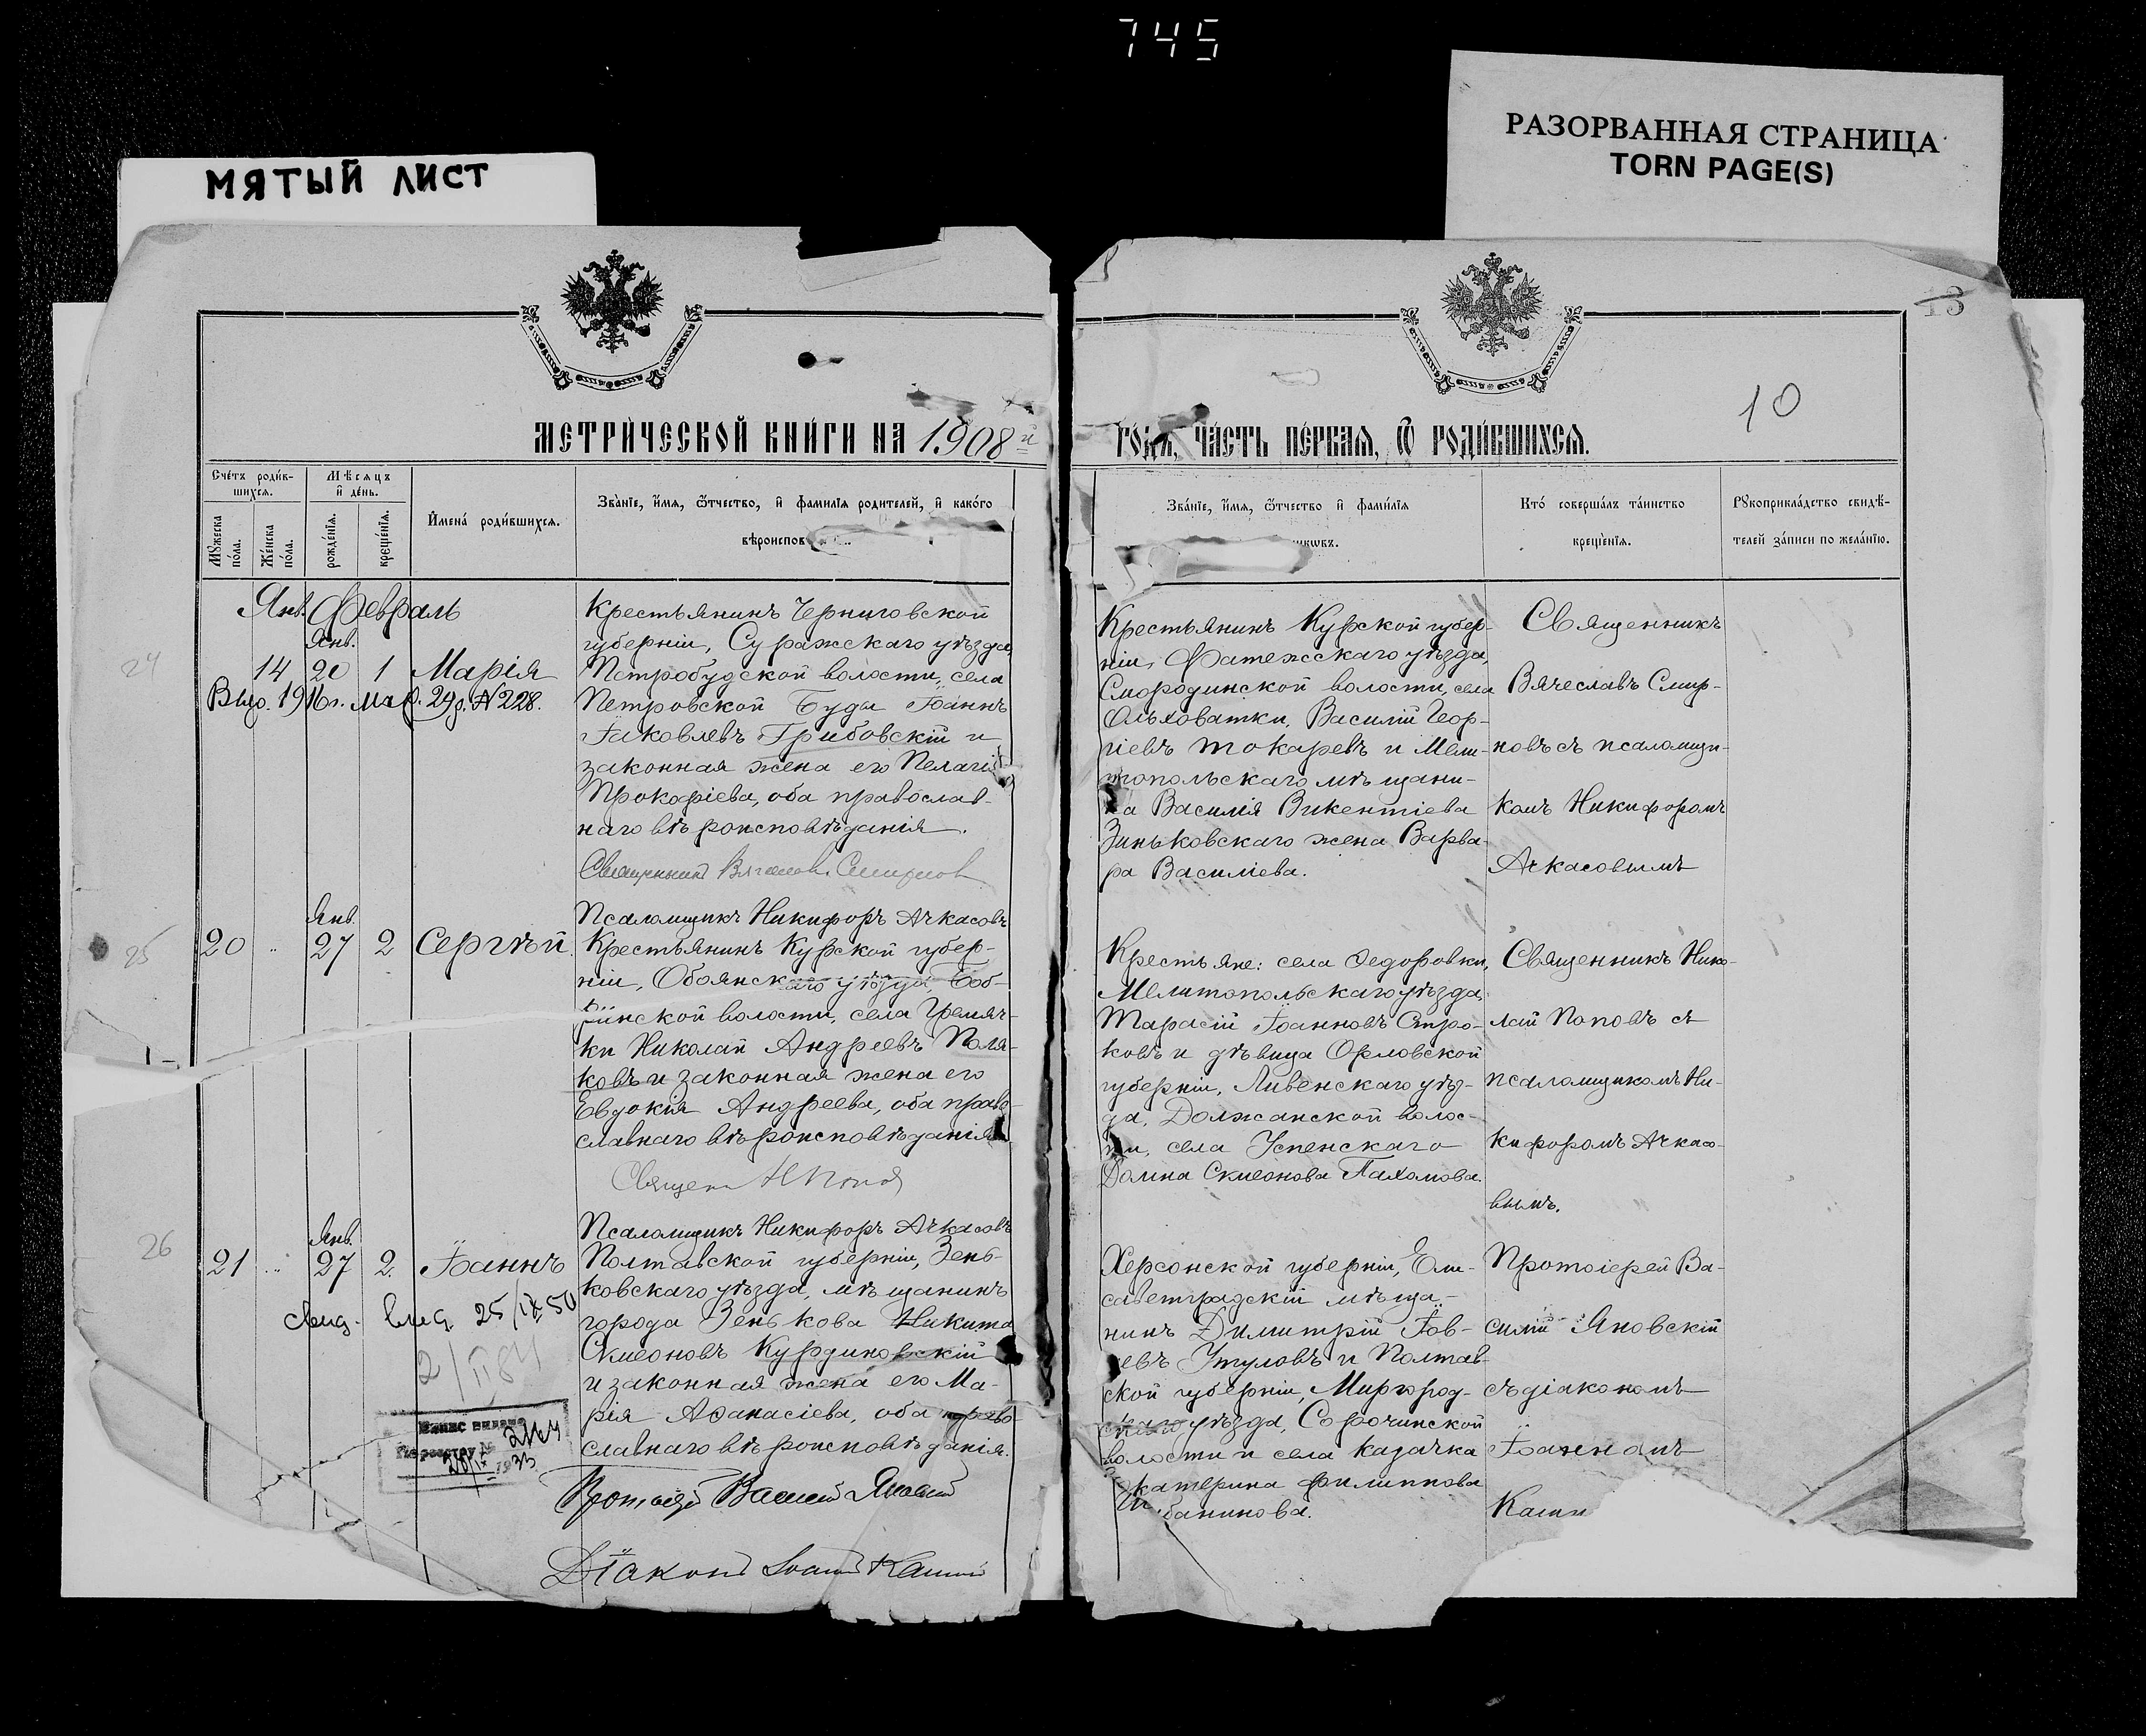 745
РАЗОРВАННАЯ СТРАНИЦА
TORN PAGE(S)
МЯТЫЙ ЛИСТ
13
10
МЕТРИ́ЧЕСКОЙ КНИ́ГИ НА 1908 й
ГОДА, ЧА́СТЬ ПЕ́РВАЯ, Ѿ РОДИ́ВШИХСЯ.
Сче́тъ роди́в-
шихся.
Мѣсяцъ
и҆ де́нь.
Мꙋ́жеска
по́ла.
Же́нска
по́ла.
рожде́нїя.
креще́нїя.
И҆мена̀ роди́вшихся.
Зва́нїе, и҆́мя, ѿ́чество, и҆ фами́лїя роди́телей, и҆ како́го
вѣроиспов
Зва́нїе, и҆́мя, ѿ́чество и҆ фами́лїя
Кто̀ соверша́лъ та́инство
креще́нїя.
Рꙋкоприкла́дство свидѣ́-
телей за́писи по жела́нїю.
Янв. Февраль
24
14
Янв.
20
1
Марія
Выд. 1916 г. Мар. 29 д. № 228.
Крестьянинъ Черниговской
губерніи, Суражскаго уѣзда,
Петробудской волости, села
Петровской Буды Іоаннъ
Іаковлевъ Грибовскій и
законная жена его Пелагія
Прокофіева, оба православ-
наго вѣроисповѣданія.
Священникъ Вячеслав Смирнов
Псаломщикъ Никифоръ Ачкасовъ
Крестьянинъ Курской губер-
ніи, Фатежскаго уѣзда,
Смородинской волости, села
Ольховатки, Василій Геор-
гіевъ Токаревъ и Мели-
топольскаго мѣщани-
на Василія Викентіева
Зиньковскаго жена Варва-
ра Василіева.
Священникъ
Вячеславъ Смир-
новъ съ псаломщи-
комъ Никифоромъ
Ачкасовымъ
25
20
Янв.
27
2
Сергѣй
Крестьянинъ Курской губер-
ніи, Обоянскаго уѣзда,
волости, села Гремяч-
ки Николай Андреевъ Поля-
ковъ и законная жена его
Евдокія Андреева, оба право-
славнаго вѣроисповѣданія.
Священ Н Попов
Псаломщикъ Никифоръ Ачкасовъ
Крестьяне: села Ѳедоровки,
Мелитопольскаго уѣзда,
Тарасій Іоанновъ
и дѣвица Орловской
губерніи, Ливенскаго уѣз-
да, Должанской волос-
ти, села Успенскаго
Домна Симеонова Пахомова.
Священникъ Нико-
лай Поповъ съ
псаломщикомъ Ни-
кифоромъ Ачкасо-
вымъ.
26
21
Янв.
27
2.
Іоаннъ
свид. выд. 25/IX 50
2/II 84
2164
Полтавской губерніи, Зень-
ковскаго уѣзда, мѣщанинъ
города Зенькова Никита
Симеоновъ Курдиновскій
и законная жена его Ма-
рія Аѳанасіева, оба право-
славнаго вѣроисповѣданія.
Протоіерей Василій Яновскій
Діаконъ Іоаннъ
Херсонской губерніи, Ели-
саветградскій мѣща-
нинъ Димитрій Іов-
левъ Утуловъ и Полтав-
ской губерніи, Миргород-
скаго уѣзда, Сорочинской
волости и села казачка
Екатерина Филиппова
Протоіерей Ва-
силій Яновскій
съ діакономъ
Іоанномъ